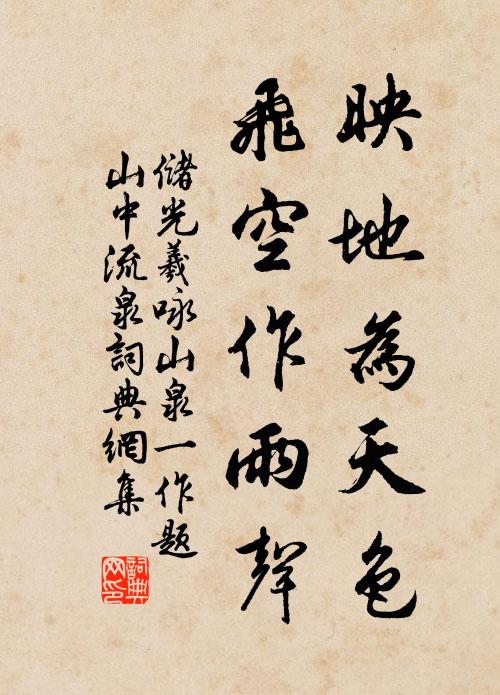 映地為天色
飛空作雨聲
儲光羲咏山泉一作題
山中流泉詞典網集
詞典网印